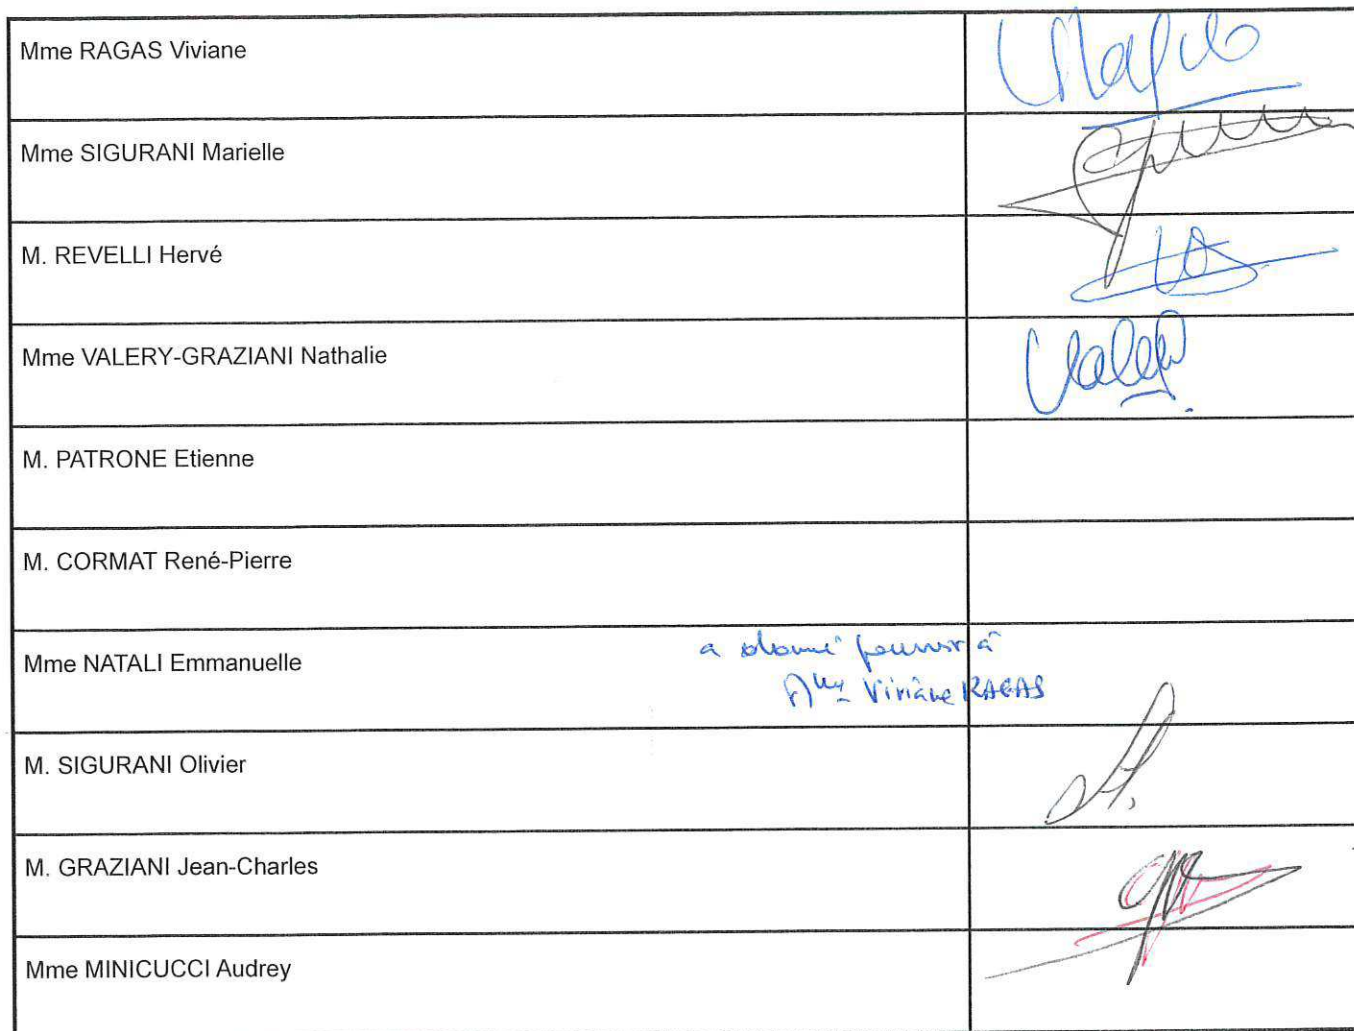 Mme RAGAS Viviane
Mme SIGURANI Marielle
M. REVELLI Hervé
Mme VALERY-GRAZIANI Nathalie
M. PATRONE Etienne
M. CORMAT René-Pierre
Mme NATALI Emmanuelle
a donné pouvoir à
Mme Viviane RAGAS
M. SIGURANI Olivier
M. GRAZIANI Jean-Charles
Mme MINICUCCI Audrey